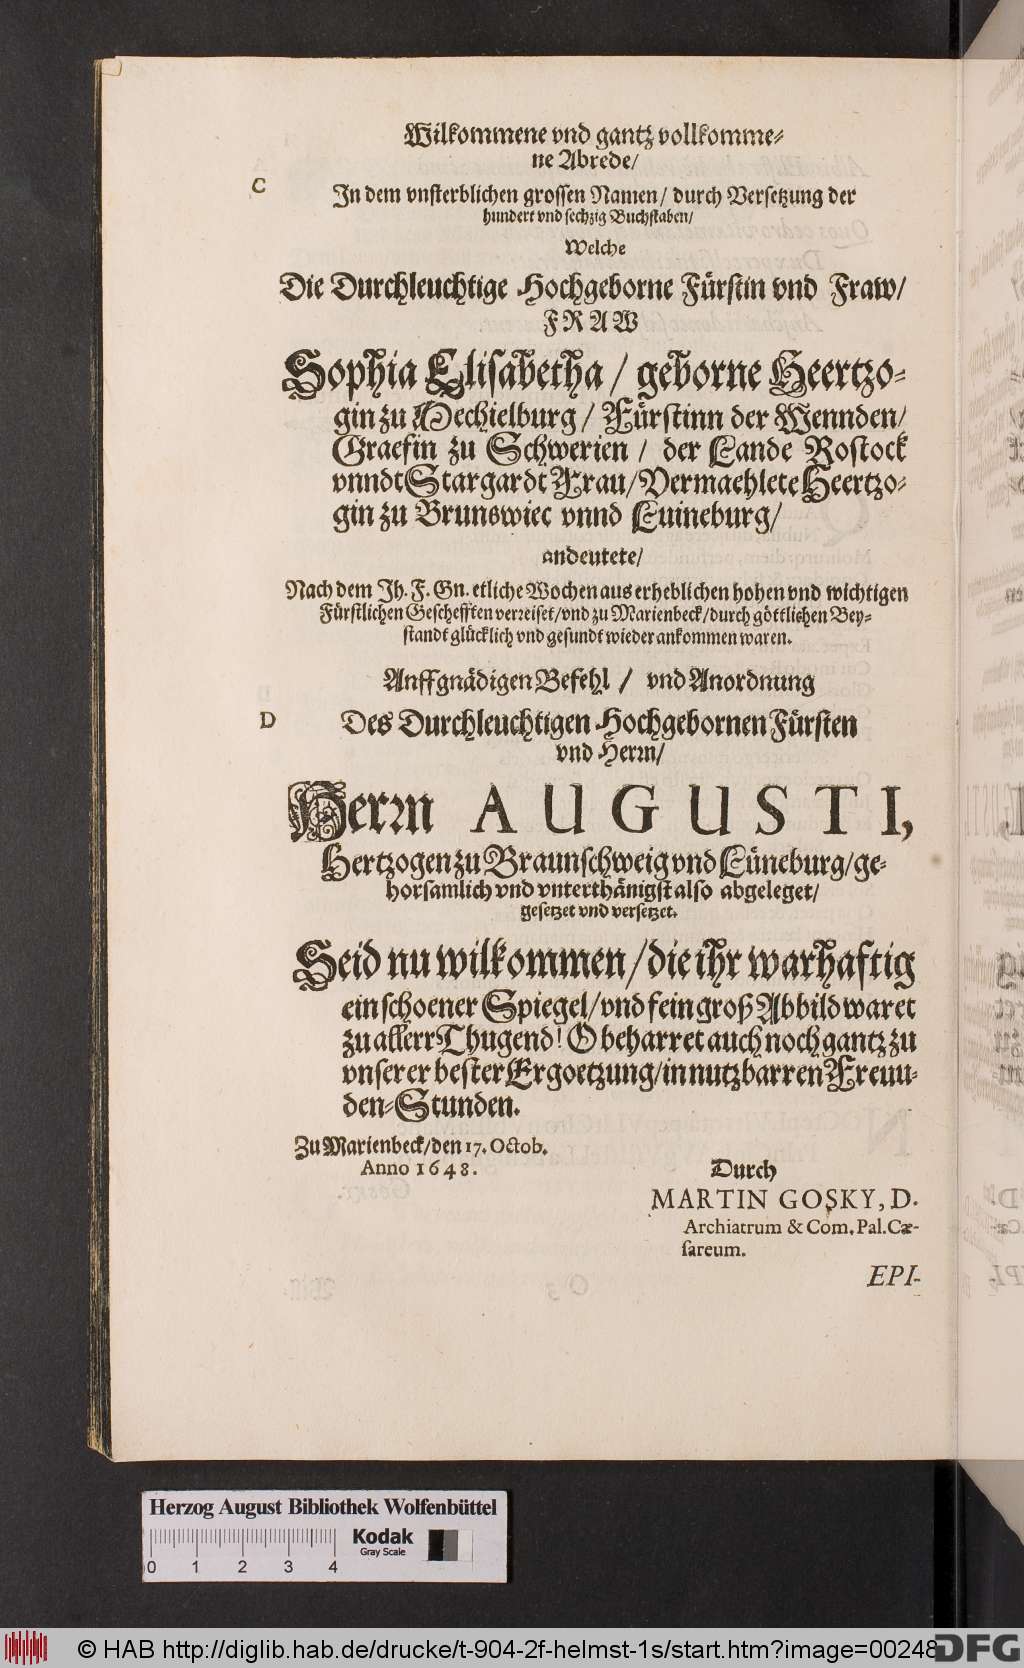 Wilkommene vnd gantz vollkomme-
ne Abrede/
C
In dem vnsterblichen grossen Namen/ durch Versetzung der
hundert vnd sechzig Buchstaben/
Welche
Die Durchleuchtige Hochgeborne Fürstin vnd Fraw/
FRAW
Sophia Elisabetha / geborne Heertzo-
gin zu Mechielburg / Fürstinn der Wennden/
Graefin zu Schwerien / der Lande Rostock
vnndt Stargardt Frau/ Vermaehlete Heertzo-
gin zu Brunswiec vnnd Luineburg/
andeutete/
Nach dem Ih. F. Gn. etliche Wochen aus erheblichen hohen vnd wichtigen
Fürstlichen Geschefften verreiset/ vnd zu Marienbeck/ durch göttlichen Bey-
standt glücklich vnd gesundt wieder ankommen waren.
Auff gnädigen Befehl / vnd Anordnung
D
Des Durchleuchtigen Hochgebornen Fürsten
vnd Herrn/
Herrn AUGUSTI,
Hertzogen zu Braunschweig vnd Lüneburg/ ge-
horsamlich vnd vnterthänigst also abgeleget/
gesetzet vnd versetzet.
Seid nu wilkommen/ die ihr warhaftig
ein schoener Spiegel/ vnd fein groß Abbild waret
zu allerr Thugend! O beharret auch noch gantz zu
vnserer bester Ergoetzung/ in nutzbarren Freuu-
den-Stunden.
Zu Marienbeck/ den 17. Octob.
Anno 1648.
Durch
MARTIN GOSKY, D.
Archiatrum & Com. Pal. Cæ-
sareum.
EPI-
Herzog August Bibliothek Wolfenbüttel
Kodak
Gray Scale
0 1 2 3 4
© HAB http://diglib.hab.de/drucke/t-904-2f-helmst-1s/start.htm?image=00248
DFG